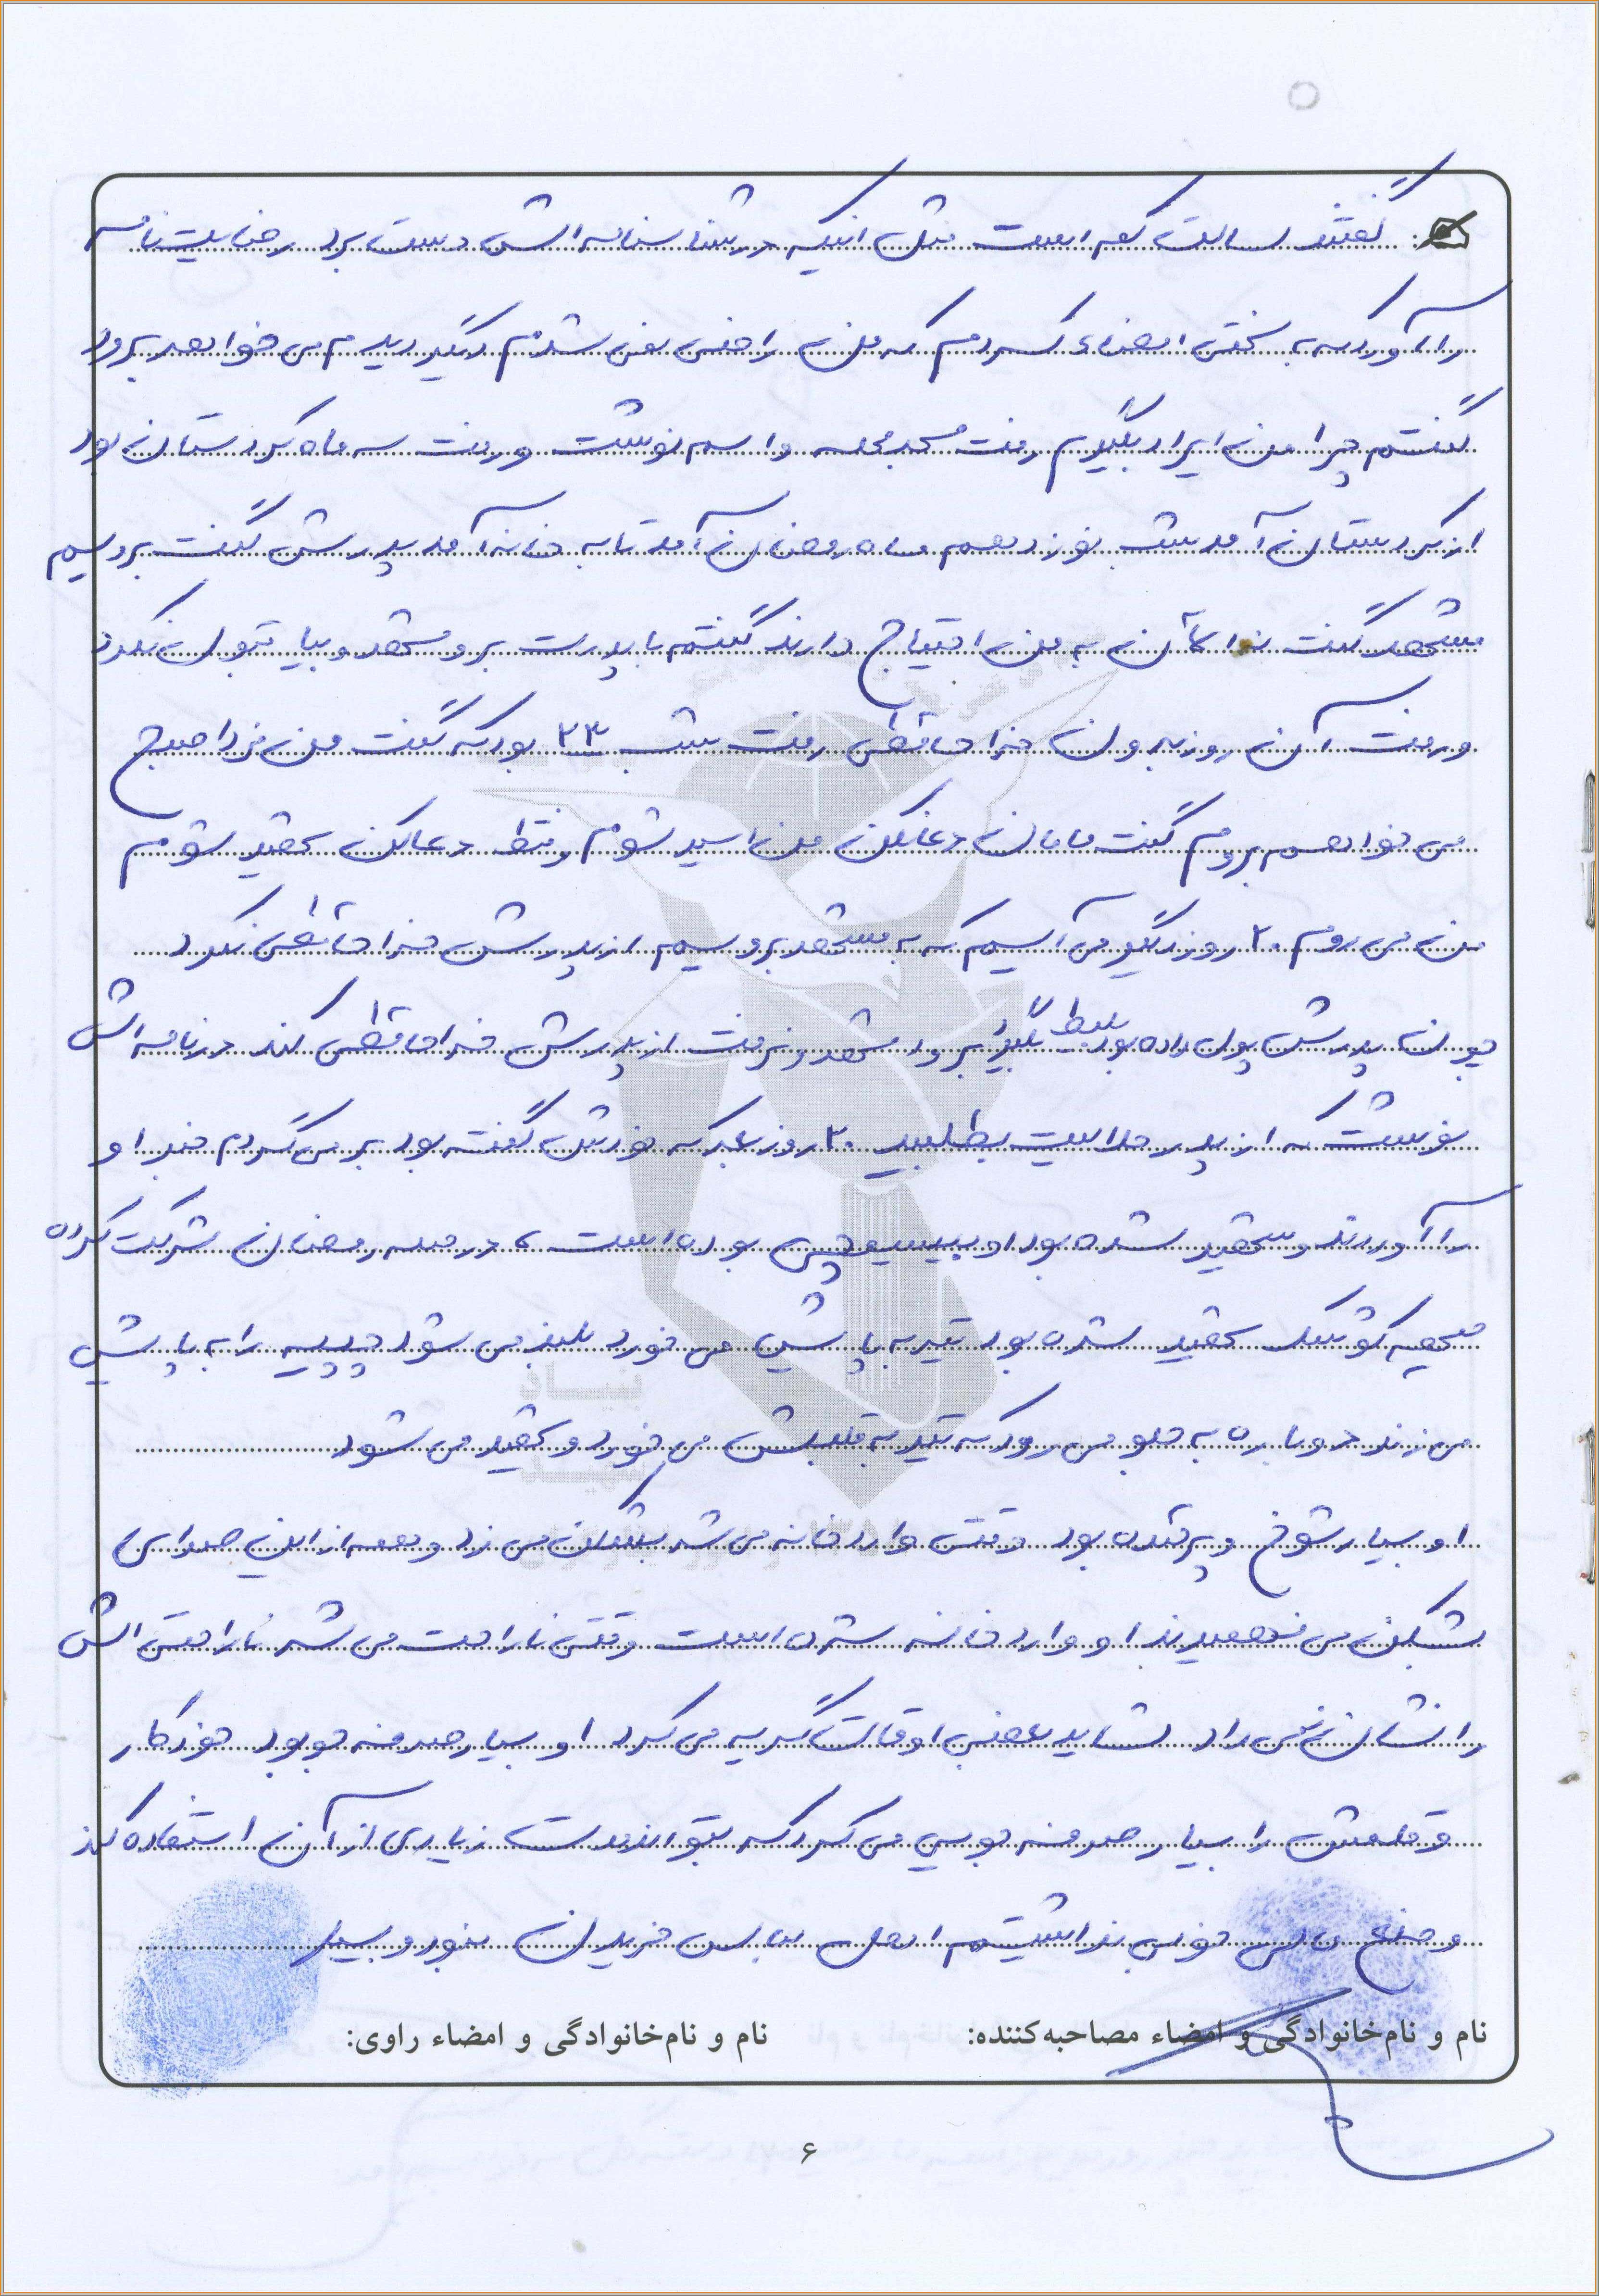 گفتند سالت کم است مثل اینکه در شناسنامه اش دست برد رضایت نامه
را آورد که به سختی امضاء کردم که من راضی نمی شدم دیگر دیدم می خواهد برود
گفتم چرا من ایراد بگیرم رفت مسجد محله و اسم نوشت و رفت سه ماه کردستان بود
از کردستان آمد شب نوزدهم ماه رمضان آمد تا به خانه آمد پدرش گفت برویم
مشهد گفت نه الان به من احتیاج دارند گفتم با پدرت برو مشهد و بیا قبول نکرد
و رفت آن روز بدون خداحافظی رفت شب ۲۳ بود که گفت من فردا صبح
می خواهم بروم گفت مامان دعا نکن من اسیر شوم فقط دعا کن شهید شوم
من می روم ۲۰ روز دیگر می آیم که به مشهد برویم از پدرش خداحافظی نکرد
چون پدرش پول داده بود بلیط بگیرد برود مشهد و نرفت از پدرش خداحافظی کند در نامه اش
نوشت که از پدر حلالیت بطلبید ۲۰ روز بعد که خودش گفته بود بر می گردم خبر او
را آوردند و شهید شده بود او بیسیم چی بوده است، در حمله رمضان شرکت کرده
کوشک شهید شده بود تیر به پایش می خورد بلند می شود چپیه را به پایش
می زند دوباره به جلو می رود که تیر به قلبش می خورد و شهید می شود
او بسیار شوخ و پرخنده بود وقتی وارد خانه می شد بشکن می زد و همه از این صدای
بشکن می فهمیدند او وارد خانه شده است وقتی ناراحت می شد ناراحتی اش
را نشان نمی داد شاید بعضی اوقات گریه می کرد او بسیار صرفه جو بود خودکار
و قلمش را بسیار صرفه جویی می کرد که بتواند مدت زیادی از آن استفاده کند
وضع مالی خوبی نداشتیم اهل لباس خریدن نبود و بسیار
نام و نام‌خانوادگی و امضاء مصاحبه‌کننده: نام و نام‌خانوادگی و امضاء راوی:
۶